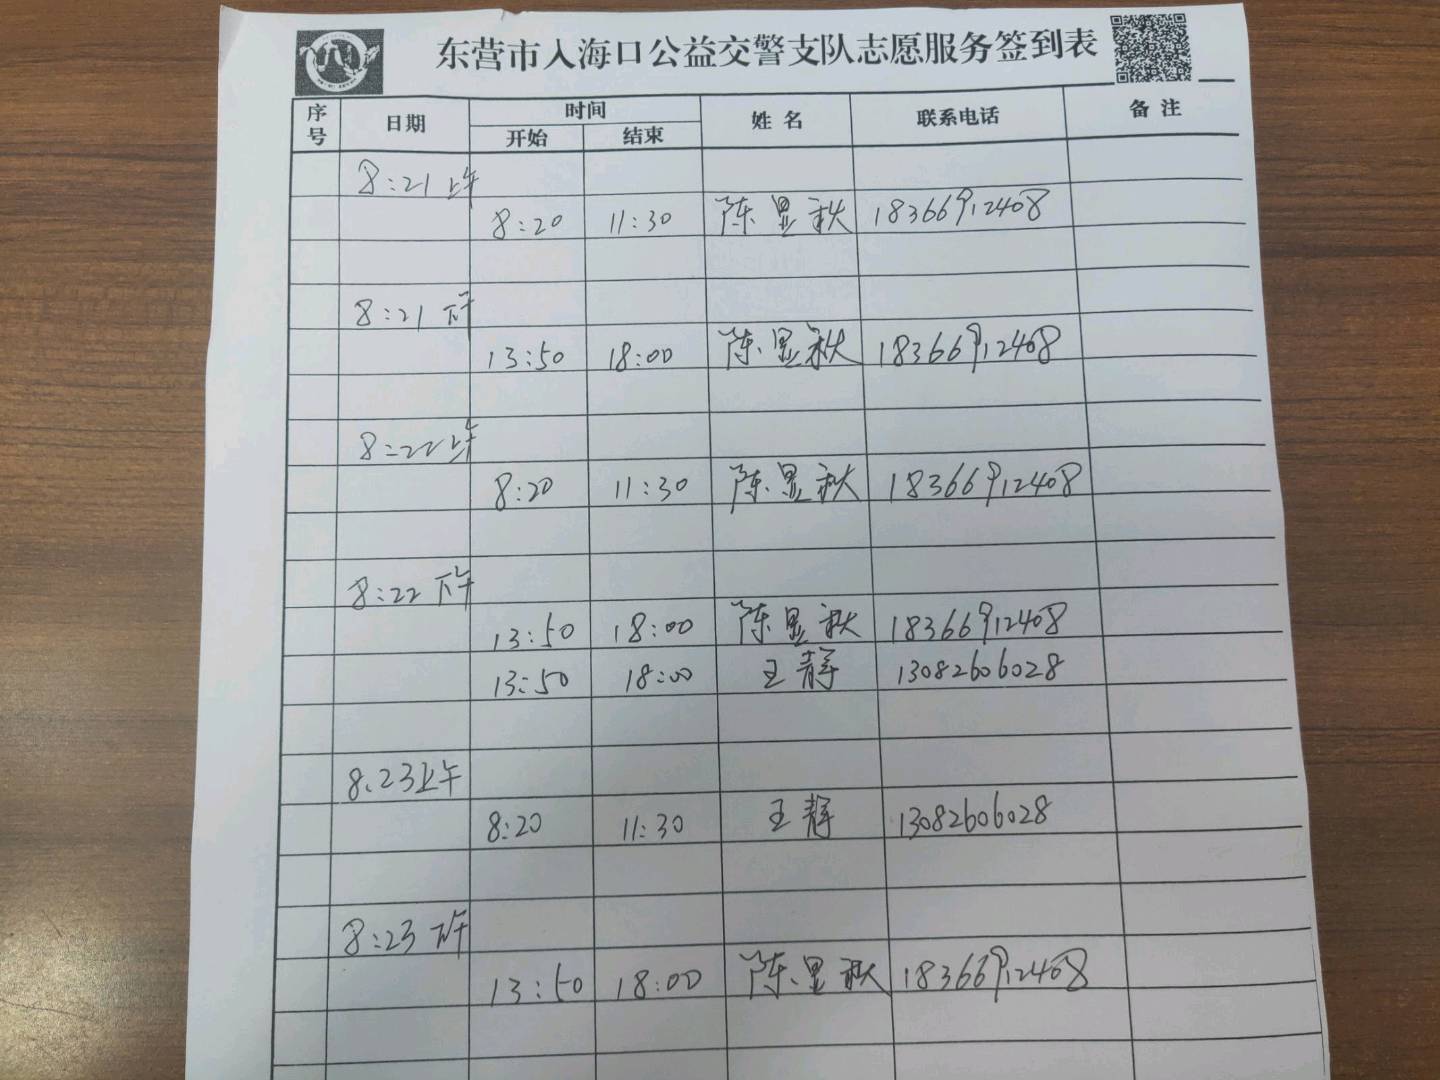 东营市入海口公益交警支队志愿服务签到表
序号 日期 时间 姓名 联系电话 备注
开始 结束
8:21上午
8:20 11:30 陈显秋 18366912408
8:21下午
13:50 18:00 陈显秋 18366912408
8:22上午
8:20 11:30 陈显秋 18366912408
8:22下午
13:50 18:00 陈显秋 18366912408
13:50 18:00 王静 13082606028
8.23上午
8:20 11:30 王静 13082606028
8:23下午
13:50 18:00 陈显秋 18366912408